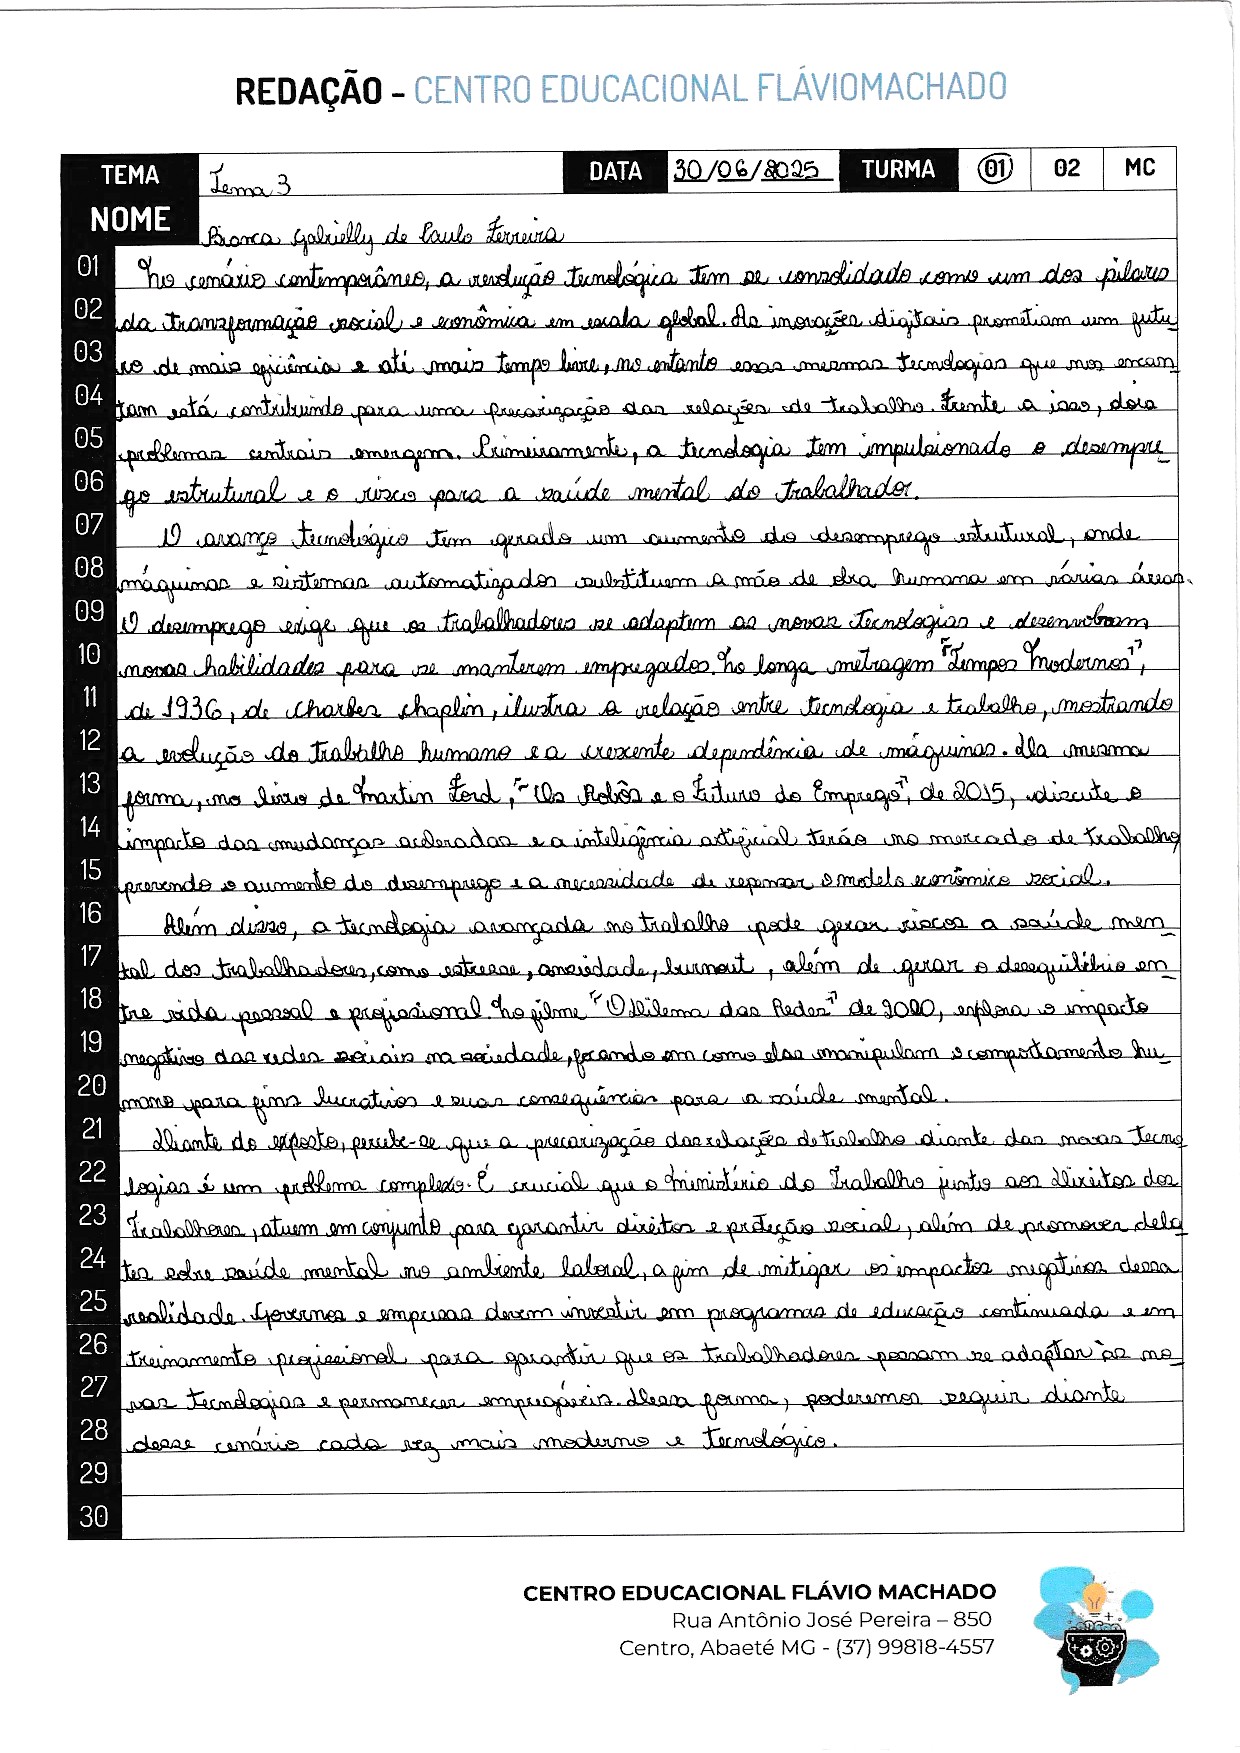 REDAÇÃO - CENTRO EDUCACIONAL FLÁVIOMACHADO
TEMA Tema 3 DATA 30/06/2025 TURMA 01 02 MC
NOME Bianca Gabrielly de Paulo Ferreira
01 No cenário contemporâneo, a revolução tecnológica tem se consolidado como um dos pilares
02 da transformação social e econômica em escala global. As inovações digitais prometiam um futu
03 ro de mais eficiência e até mais tempo livre, no entanto essas mesmas tecnologias que nos encan
04 tam está contribuindo para uma precarização das relações de trabalho. Frente a isso, dois
05 problemas centrais emergem. Primeiramente, a tecnologia tem impulsionado o desempre_
06 go estrutural e o risco para a saúde mental do trabalhador.
07 O avanço tecnológico tem gerado um aumento do desemprego estrutural, onde
08 máquinas e sistemas automatizados substituem a mão de obra humana em várias áreas.
09 O desemprego exige que os trabalhadores se adaptem as novas tecnologias e desenvolvam
10 novas habilidades para se manterem empregados. No longa metragem "Tempos Modernos",
11 de 1936, de Charles Chaplin, ilustra a relação entre tecnologia e trabalho, mostrando
12 a evolução do trabalho humano e a crescente dependência de máquinas. Da mesma
13 forma, no livro de Martin Ford, "Os Robôs e o Futuro do Emprego", de 2015, discute o
14 impacto das mudanças aceleradas e a inteligência artificial terão no mercado de trabalho
15 prevendo o aumento do desemprego e a necessidade de repensar o modelo econômico social.
16 Além disso, a tecnologia avançada no trabalho pode gerar riscos a saúde men_
17 tal dos trabalhadores, como estresse, ansiedade, burnout, além de gerar o desequilíbrio en_
18 tre vida pessoal e profissional. No filme "O Dilema das Redes" de 2020, explora o impacto
19 negativo das redes sociais na sociedade, focando em como elas manipulam o comportamento hu_
20 mano para fins lucrativos e suas consequências para a saúde mental.
21 Diante do exposto, percebe-se que a precarização das relações de trabalho diante das novas tecno
22 logias é um problema complexo. É crucial que o Ministério do Trabalho junto aos Direitos dos
23 Trabalhores, atuem em conjunto para garantir direitos e proteção social, além de promover deba
24 tes sobre saúde mental no ambiente laboral, a fim de mitigar os impactos negativos dessa
25 realidade. Governos e empresas devem investir em programas de educação continuada e em
26 treinamento profissional para garantir que os trabalhadores possam se adaptar às no_
27 vas tecnologias e permanecer empregáveis. Dessa forma, poderemos seguir diante
28 desse cenário cada vez mais moderno e tecnológico.
29
30
CENTRO EDUCACIONAL FLÁVIO MACHADO
Rua Antônio José Pereira – 850
Centro, Abaeté MG - (37) 99818-4557